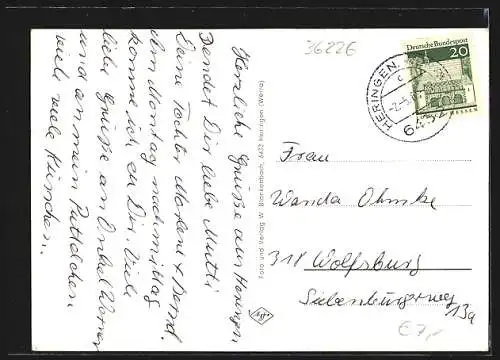 Herzliche Grüße aus Heringen
sendet Dir liebe Mutti
Deine Tochter Marlene + Bernd.
Am Montag nachmittag
komme ich zu Dir. Viele
liebe Grüße an Onkel Werner
und an mein
viele viele Küßchen.
36226
Deutsche Bundespost
20
HERINGEN
HESSEN
Foto und Verlag W. Blankenbach, 6432 Heringen (Werra)
Frau
Wanda Ohmke
318 Wolfsburg
Siebenbürgerweg
13a
€ 7,-